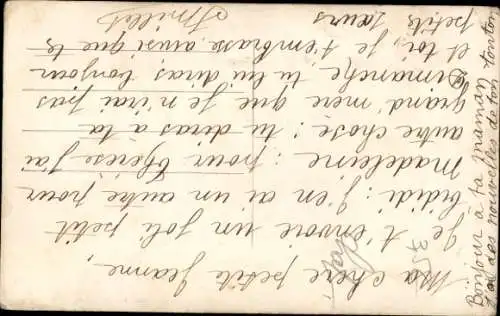 Ma chère petite Jeanne,
Je t'envoie un joli petit
bidi : j'en ai un autre pour
Madeleine : pour Thérèse j'ai
autre chose : tu diras à ta
grand'mère que je n'irai pas
Dimanche, tu lui diras bonjour
et toi, je t'embrasse ainsi que tes
petites sœurs
Bonjour à ta maman
nouvelles de ton tonton